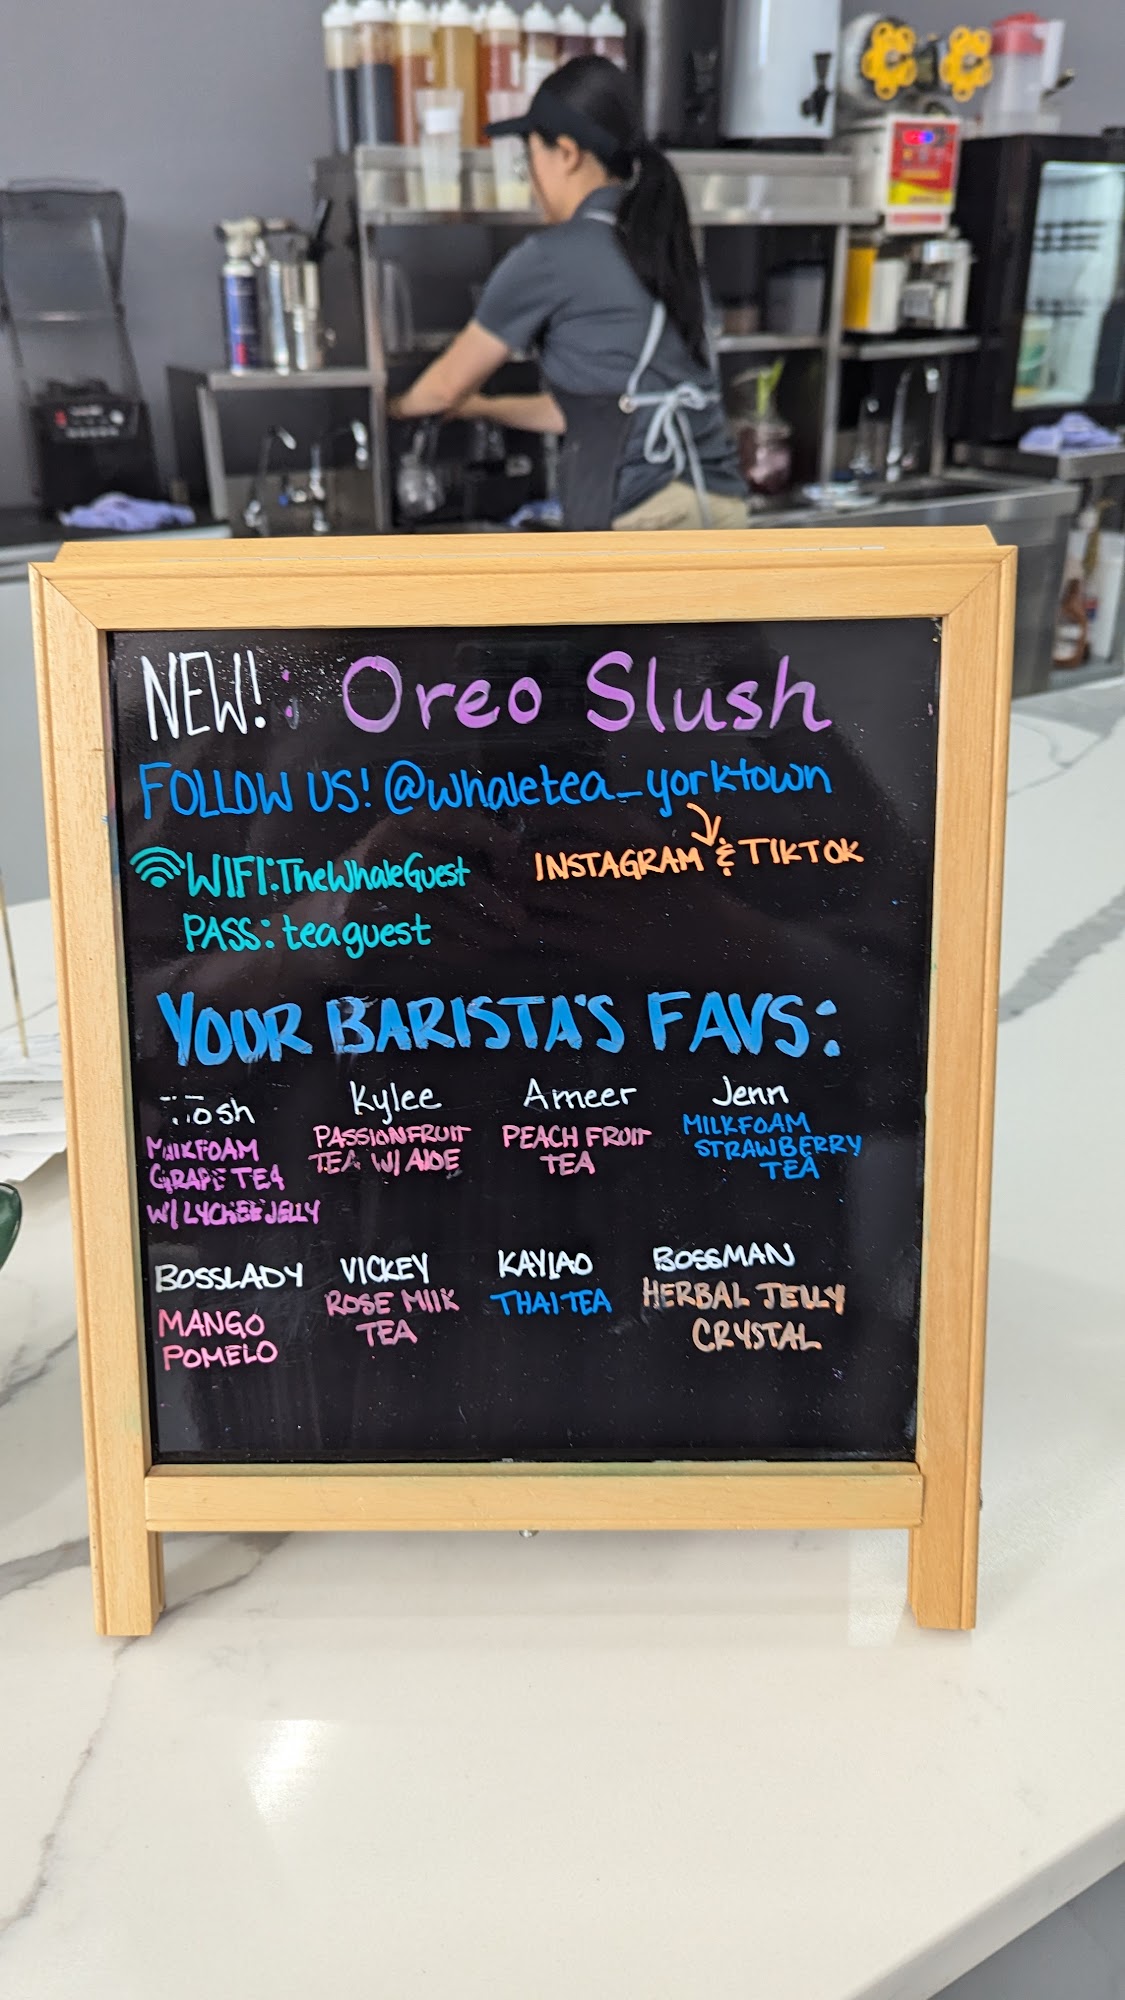 NEW!: Oreo Slush
FOLLOW US! @whaletea_yorktown
INSTAGRAM & TIKTOK
WIFI: TheWhaleGuest
PASS: teaguest
YOUR BARISTA'S FAVS:
Kylee
PASSIONFRUIT
TEA W/ ALOE
Ameer
PEACH FRUIT
TEA
Jenn
MILKFOAM
STRAWBERRY
TEA
MILKFOAM
GRAPE TEA
W/ LYCHEE JELLY
BOSSLADY
MANGO
POMELO
VICKEY
ROSE MILK
TEA
KAYLAO
THAI TEA
BOSSMAN
HERBAL JELLY
CRYSTAL